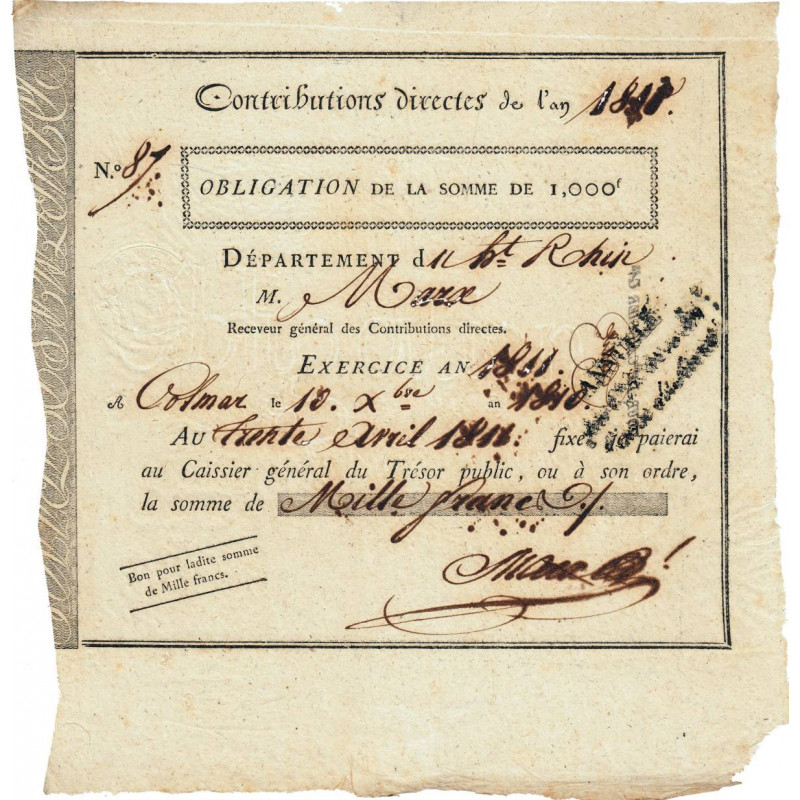 Contributions directes de l'an 1811.
N.º 87
OBLIGATION DE LA SOMME DE 1,000f
DÉPARTEMENT du ht. Rhin
M. Marx
Receveur général des Contributions directes.
EXERCICE AN 1811.
A Colmar le 10. Xbre an 1810.
AU trente Avril 1811. fixe je paierai
au Caissier général du Trésor public, ou à son ordre,
la somme de Mille francs
Bon pour ladite somme
de Mille francs.
Marx